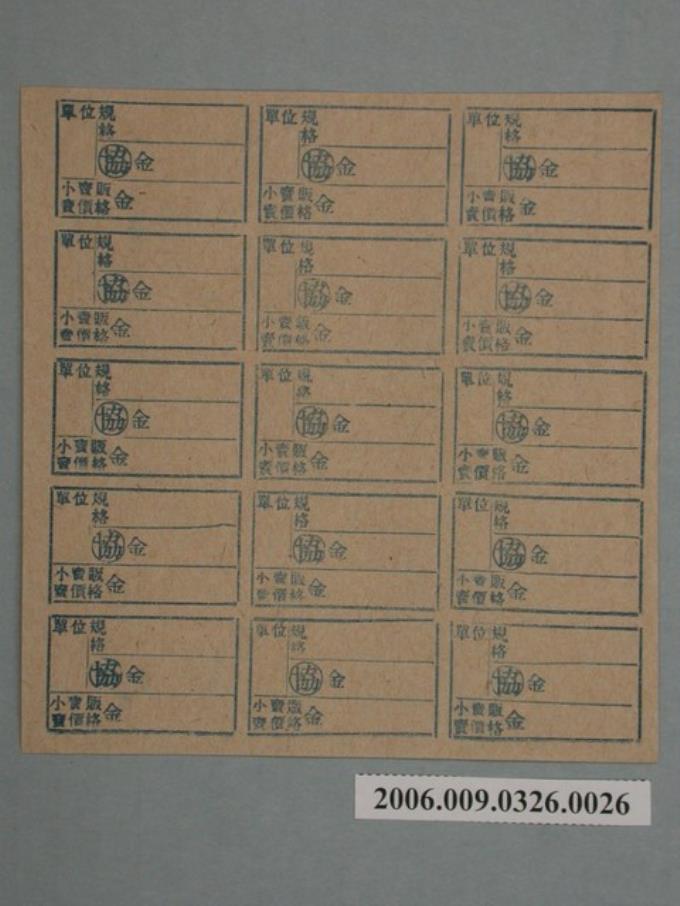 單位規
格
協金
小賣販
賣價格金
單位規
格
協金
小賣販
賣價格金
單位規
格
協金
小賣販
賣價格金
單位規
格
協金
小賣販
賣價格金
單位規
格
協金
小賣販
賣價格金
單位規
格
協金
小賣販
賣價格金
單位規
格
協金
小賣販
賣價格金
單位規
格
協金
小賣販
賣價格金
單位規
格
協金
小賣販
賣價格金
單位規
格
協金
小賣販
賣價格金
單位規
格
協金
小賣販
賣價格金
單位規
格
協金
小賣販
賣價格金
單位規
格
協金
小賣販
賣價格金
單位規
格
協金
小賣販
賣價格金
單位規
格
協金
小賣販
賣價格金
2006.009.0326.0026